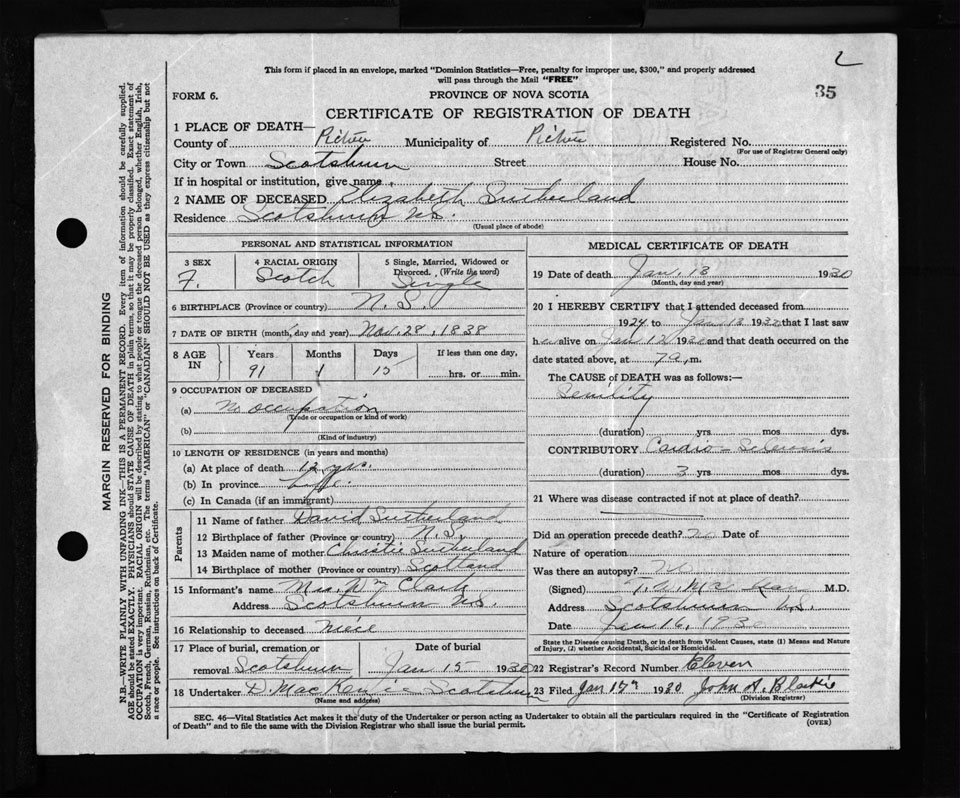 2
This form if placed in an envelope, marked "Dominion Statistics—Free, penalty for improper use, $300," and properly addressed
will pass through the Mail "FREE"
FORM 6.
PROVINCE OF NOVA SCOTIA
35
CERTIFICATE OF REGISTRATION OF DEATH
1 PLACE OF DEATH—
County of Pictou Municipality of Pictou Registered No.
(For use of Registrar General only)
City or Town Scotsburn Street House No.
If in hospital or institution, give name
2 NAME OF DECEASED Elizabeth Sutherland
Residence Scotsburn N.S.
(Usual place of abode)
PERSONAL AND STATISTICAL INFORMATION
3 SEX 4 RACIAL ORIGIN 5 Single, Married, Widowed or
Divorced. (Write the word)
F. Scotch Single
6 BIRTHPLACE (Province or country) N.S.
7 DATE OF BIRTH (month, day and year) Nov. 28, 1838
8 AGE IN Years Months Days If less than one day,
91 1 15 hrs. or min.
9 OCCUPATION OF DECEASED
(a) No occupation
(Trade or occupation or kind of work)
(b)
(Kind of industry)
10 LENGTH OF RESIDENCE (in years and months)
(a) At place of death 12 yrs.
(b) In province Life.
(c) In Canada (if an immigrant)
Parents
11 Name of father David Sutherland
12 Birthplace of father (Province or country) N.S.
13 Maiden name of mother Christie Sutherland
14 Birthplace of mother (Province or country) Scotland
15 Informant's name Mrs. Wm Clark
Address Scotsburn N.S.
16 Relationship to deceased niece
17 Place of burial, cremation or Date of burial
removal Scotsburn Jan 15 1930
18 Undertaker D. MacKenzie Scotsburn
(Name and address)
MEDICAL CERTIFICATE OF DEATH
19 Date of death Jan. 13 1930
(Month, day and year)
20 I HEREBY CERTIFY that I attended deceased from
1924 to Jan 13 1930 that I last saw
her alive on Jan 12 1930 and that death occurred on the
date stated above, at 7 a.m.
The CAUSE of DEATH was as follows:—
Senility
(duration) yrs mos dys.
CONTRIBUTORY Cardio-Sclerosis
(duration) 3 yrs mos dys.
21 Where was disease contracted if not at place of death?
Did an operation precede death? No Date of
Nature of operation
Was there an autopsy? No
(Signed) M.D.
Address Scotsburn N.S.
Date Jan 16, 1930
State the Disease causing Death, or in death from Violent Causes, state (1) Means and Nature
of Injury, (2) whether Accidental, Suicidal or Homicidal.
22 Registrar's Record Number Eleven
23 Filed Jan 17th 1930 John A.
(Division Registrar)
SEC. 46—Vital Statistics Act makes it the duty of the Undertaker or person acting as Undertaker to obtain all the particulars required in the "Certificate of Registration
of Death" and to file the same with the Division Registrar who shall issue the burial permit.
(OVER)
MARGIN RESERVED FOR BINDING
N.B.—WRITE PLAINLY WITH UNFADING INK—THIS IS A PERMANENT RECORD. Every item of information should be carefully supplied.
AGE should be stated EXACTLY. PHYSICIANS should STATE CAUSE OF DEATH in plain terms, so that it may be properly classified. Exact statement of
OCCUPATION is very important. RACIAL ORIGIN will be described by stating to what people or tongue the deceased person belonged, whether English, Irish,
Scotch, French, German, Russian, Ruthenian, etc. The terms "AMERICAN" or "CANADIAN" SHOULD NOT BE USED as they express citizenship but not
a race or people. See instructions on back of Certificate.